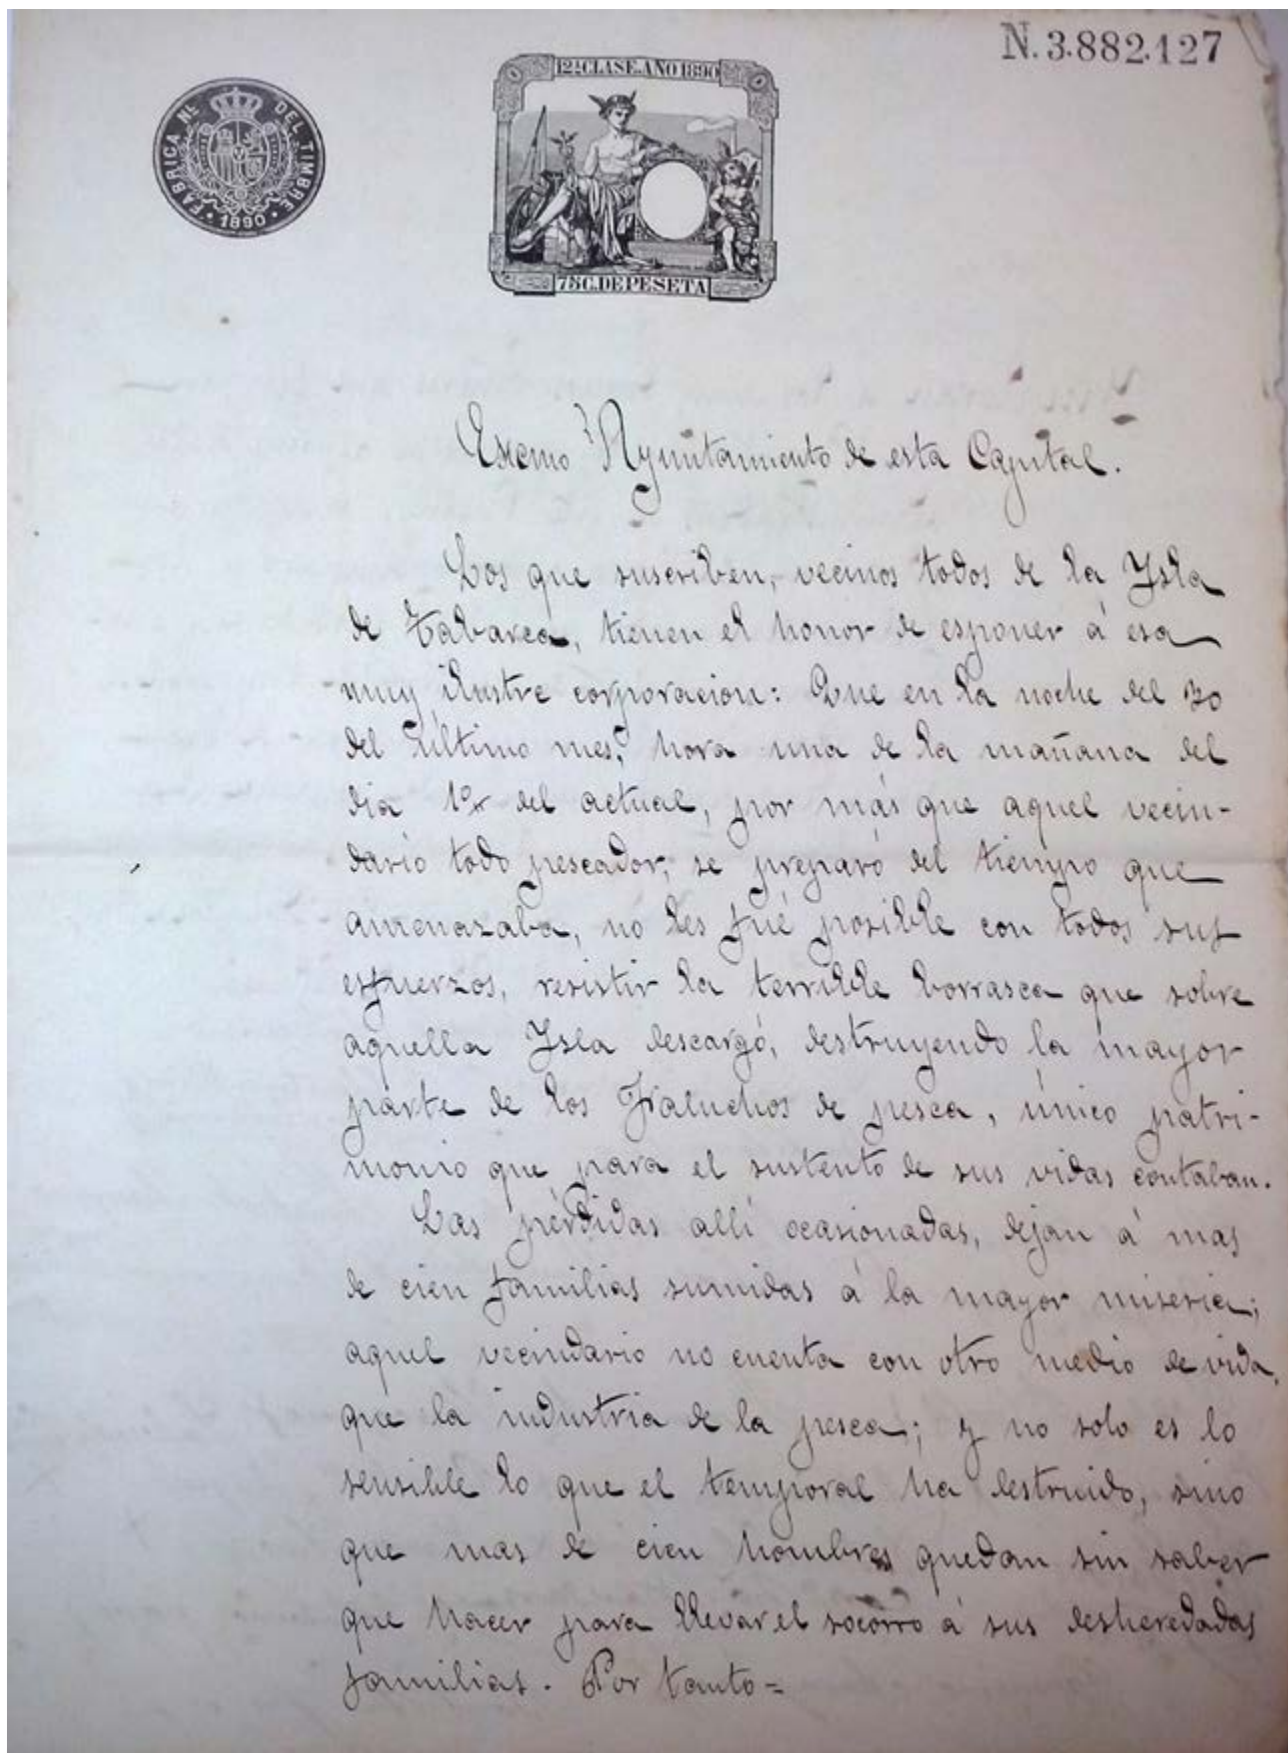 N. 3.882.127
12ª CLASE. AÑO 1890
FÁBRICA NL. DEL TIMBRE
1890
75 C. DE PESETA
Excmo Ayuntamiento de esta Capital.
Los que suscriben, vecinos todos de la Ysla
de Tabarca, tienen el honor de esponer á esa
muy ilustre corporacion: Que en la noche del 30
del último mes, hora una de la mañana del
dia 1º del actual, por más que aquel vecin-
dario todo pescador, se preparó del tiempo que
amenazaba, no les fué posible con todos sus
esfuerzos, resistir la terrible borrasca que sobre
aquella Ysla descargó, destruyendo la mayor
parte de los Faluchos de pesca, único patri-
monio que para el sustento de sus vidas contaban.
Las pérdidas allí ocasionadas, dejan á mas
de cien familias sumidas á la mayor miseria;
aquel vecindario no cuenta con otro medio de vida,
que la industria de la pesca; y no solo es lo
sensible lo que el temporal ha destruido, sino
que mas de cien hombres quedan sin saber
que hacer para llevar el socorro á sus desheredadas
familias. Por tanto=